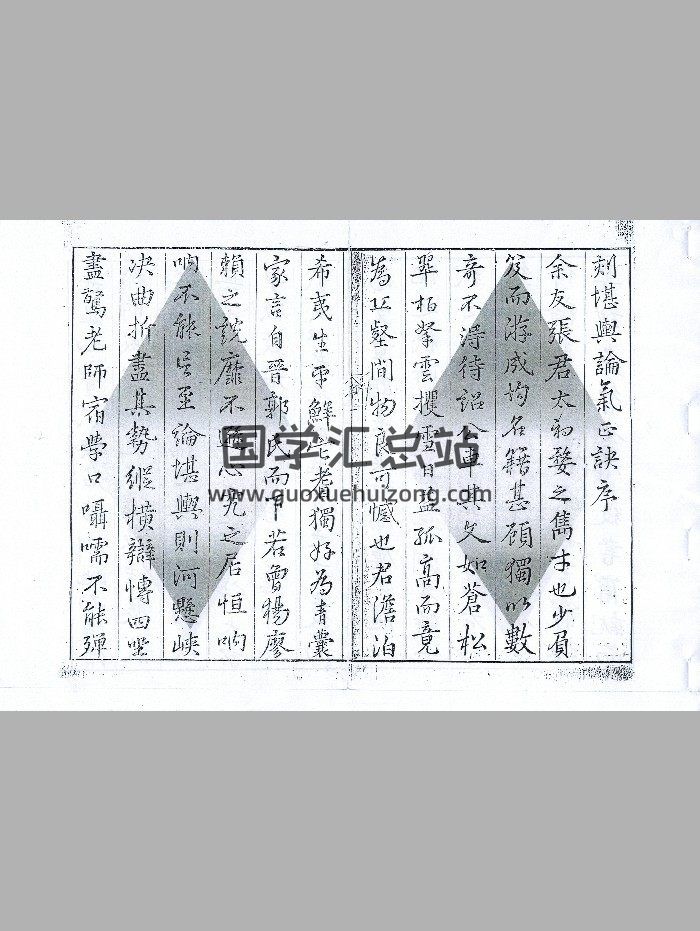 刻堪輿論氣正訣序
余友張君太初婺之雋才也少負
笈而游成均名籍甚顧獨以數
奇不得待詔公車其文如蒼松
翠柏拏雲攫雪日益孤高而竟
為丘壑間物良可憾也君澹泊
希夷生平鮮所耆獨好為青囊
家言自晉郭氏而下若曾楊廖
賴之說靡不悉心究之居恒呴
呴不能言至論堪輿則河懸峽
決曲折盡其勢縱橫辯博四坐
盡驚老師宿學口囁嚅不能殫
国学汇总站
www.guoxuehuizong.com